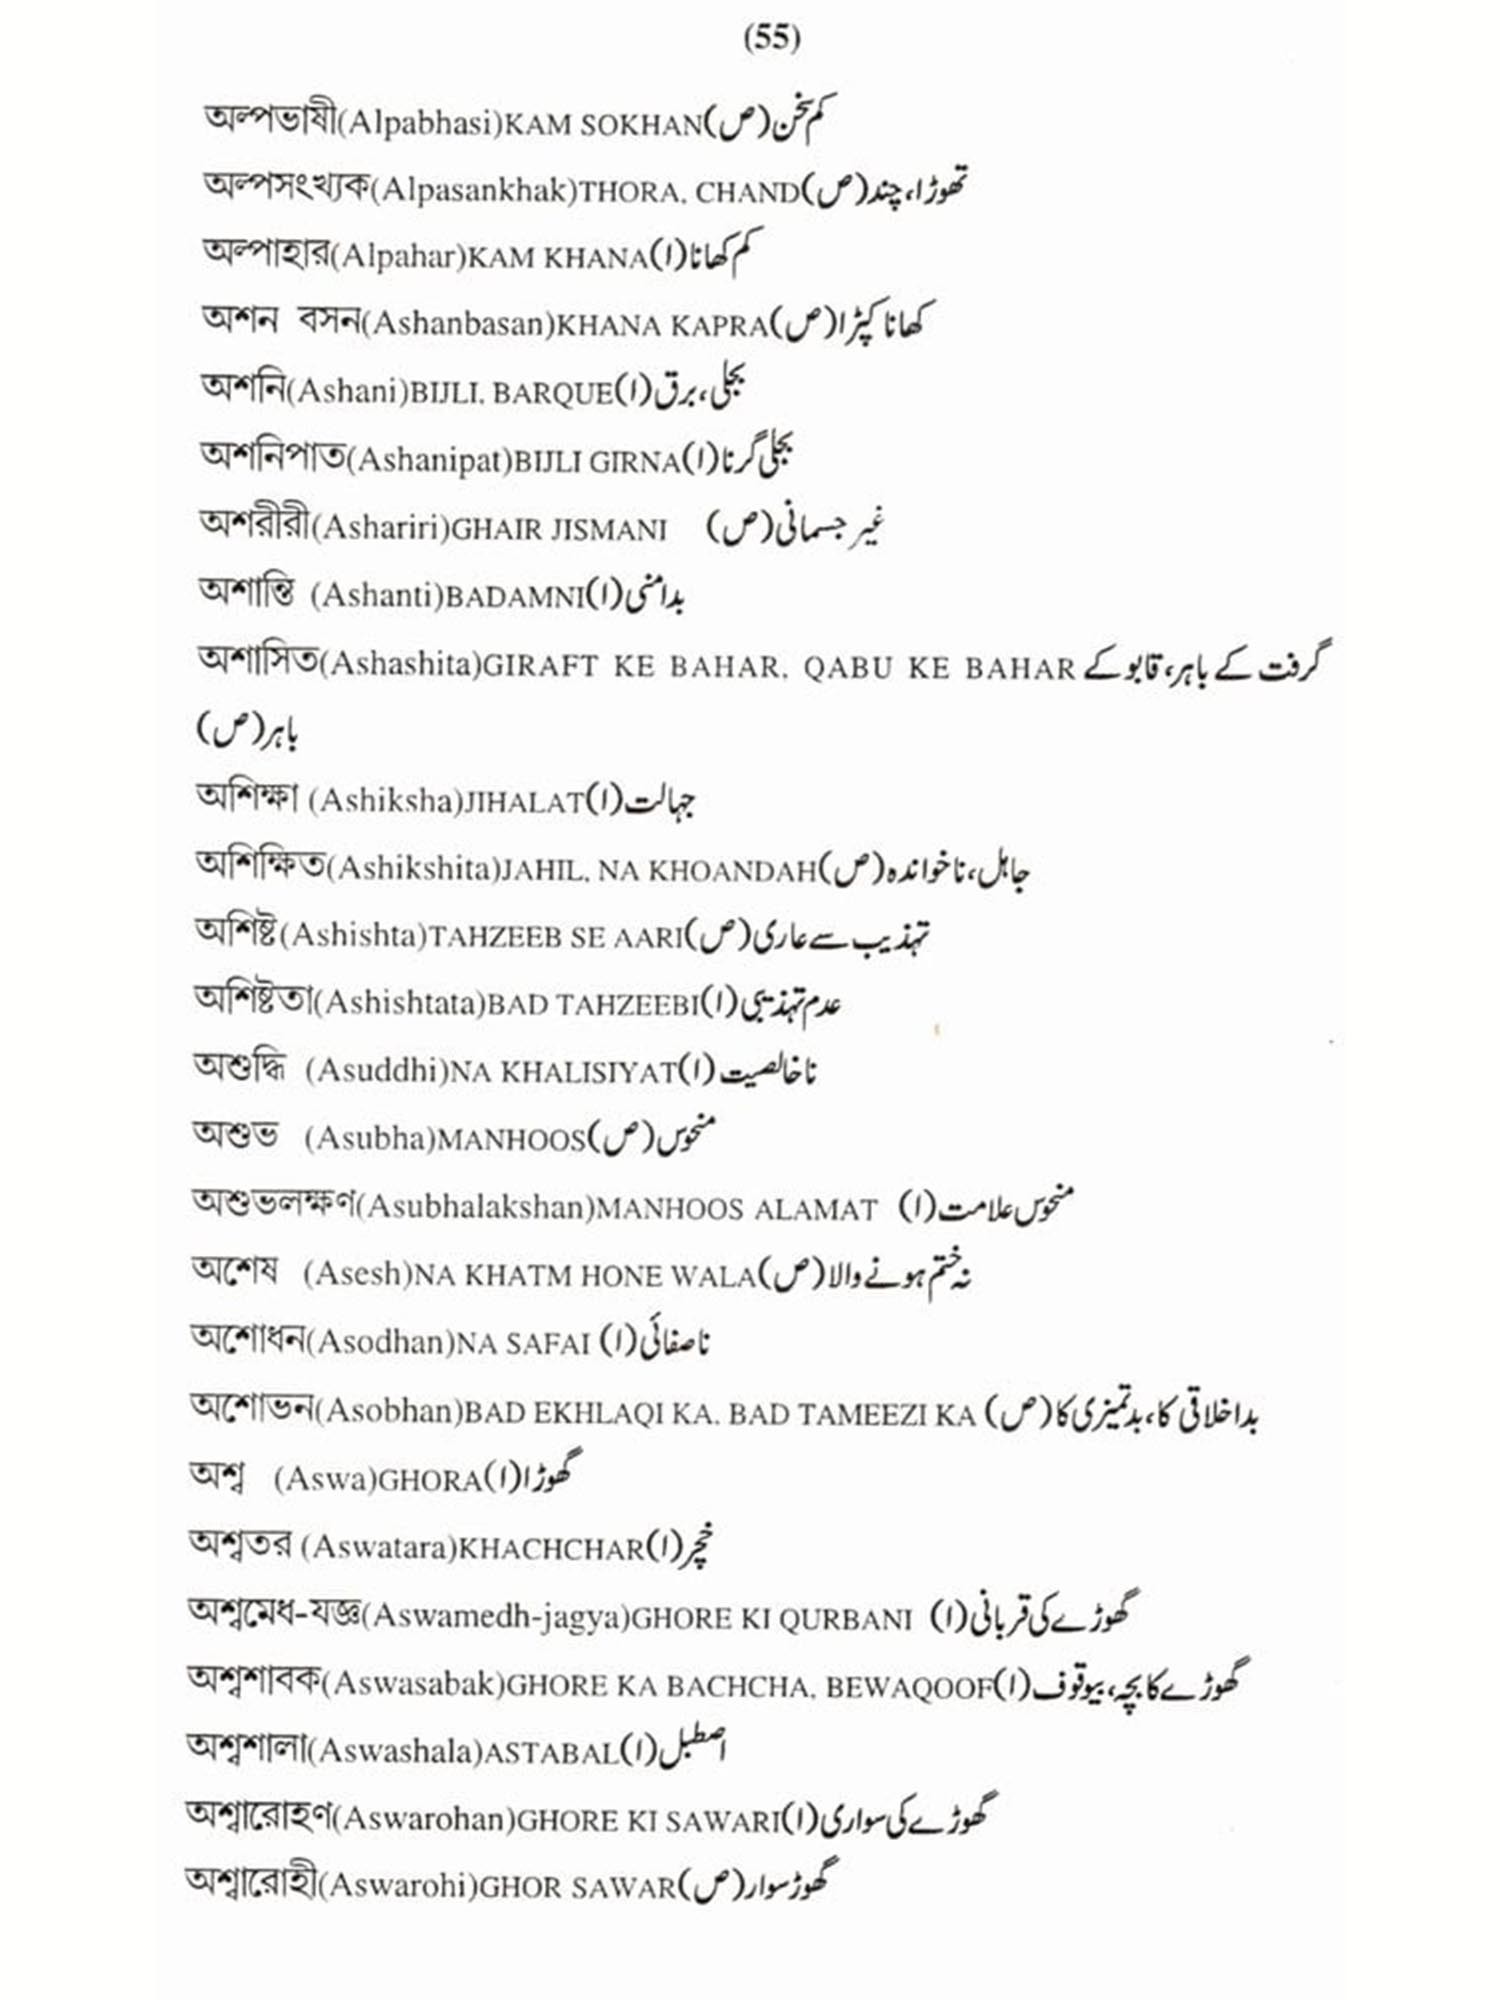 (55)
অল্পভাষী(Alpabhasi)KAM SOKHAN(ص)کم سخن
অল্পসংখ্যক(Alpasankhak)THORA, CHAND(ص)تھوڑا، چند
অল্পাহার(Alpahar)KAM KHANA(ا)کم کھانا
অশন বসন(Ashanbasan)KHANA KAPRA(ص)کھانا کپڑا
অশনি(Ashani)BIJLI, BARQUE(ا)بجلی، برق
অশনিপাত(Ashanipat)BIJLI GIRNA(ا)بجلی گرنا
অশরীরী(Ashariri)GHAIR JISMANI (ص)غیر جسمانی
অশান্তি (Ashanti)BADAMNI(ا)بدامنی
অশাসিত(Ashashita)GIRAFT KE BAHAR, QABU KE BAHAR گرفت کے باہر، قابو کے
باہر(ص)
অশিক্ষা (Ashiksha)JIHALAT(ا)جہالت
অশিক্ষিত(Ashikshita)JAHIL, NA KHOANDAH(ص)جاہل، ناخواندہ
অশিষ্ট(Ashishta)TAHZEEB SE AARI(ص)تہذیب سے عاری
অশিষ্টতা(Ashishtata)BAD TAHZEEBI(ا)عدم تہذیبی
অশুদ্ধি (Asuddhi)NA KHALISIYAT(ا)ناخالصیت
অশুভ (Asubha)MANHOOS(ص)منحوس
অশুভলক্ষণ(Asubhalakshan)MANHOOS ALAMAT (ا)منحوس علامت
অশেষ (Asesh)NA KHATM HONE WALA(ص)نہ ختم ہونے والا
অশোধন(Asodhan)NA SAFAI (ا)ناصفائی
অশোভন(Asobhan)BAD EKHLAQI KA, BAD TAMEEZI KA (ص)بداخلاقی کا، بدتمیزی کا
অশ্ব (Aswa)GHORA(ا)گھوڑا
অশ্বতর (Aswatara)KHACHCHAR(ا)خچر
অশ্বমেধ-যজ্ঞ(Aswamedh-jagya)GHORE KI QURBANI (ا)گھوڑے کی قربانی
অশ্বশাবক(Aswasabak)GHORE KA BACHCHA, BEWAQOOF(ا)گھوڑے کا بچہ، بیوقوف
অশ্বশালা(Aswashala)ASTABAL(ا)اصطبل
অশ্বারোহণ(Aswarohan)GHORE KI SAWARI(ا)گھوڑے کی سواری
অশ্বারোহী(Aswarohi)GHOR SAWAR(ص)گھوڑسوار